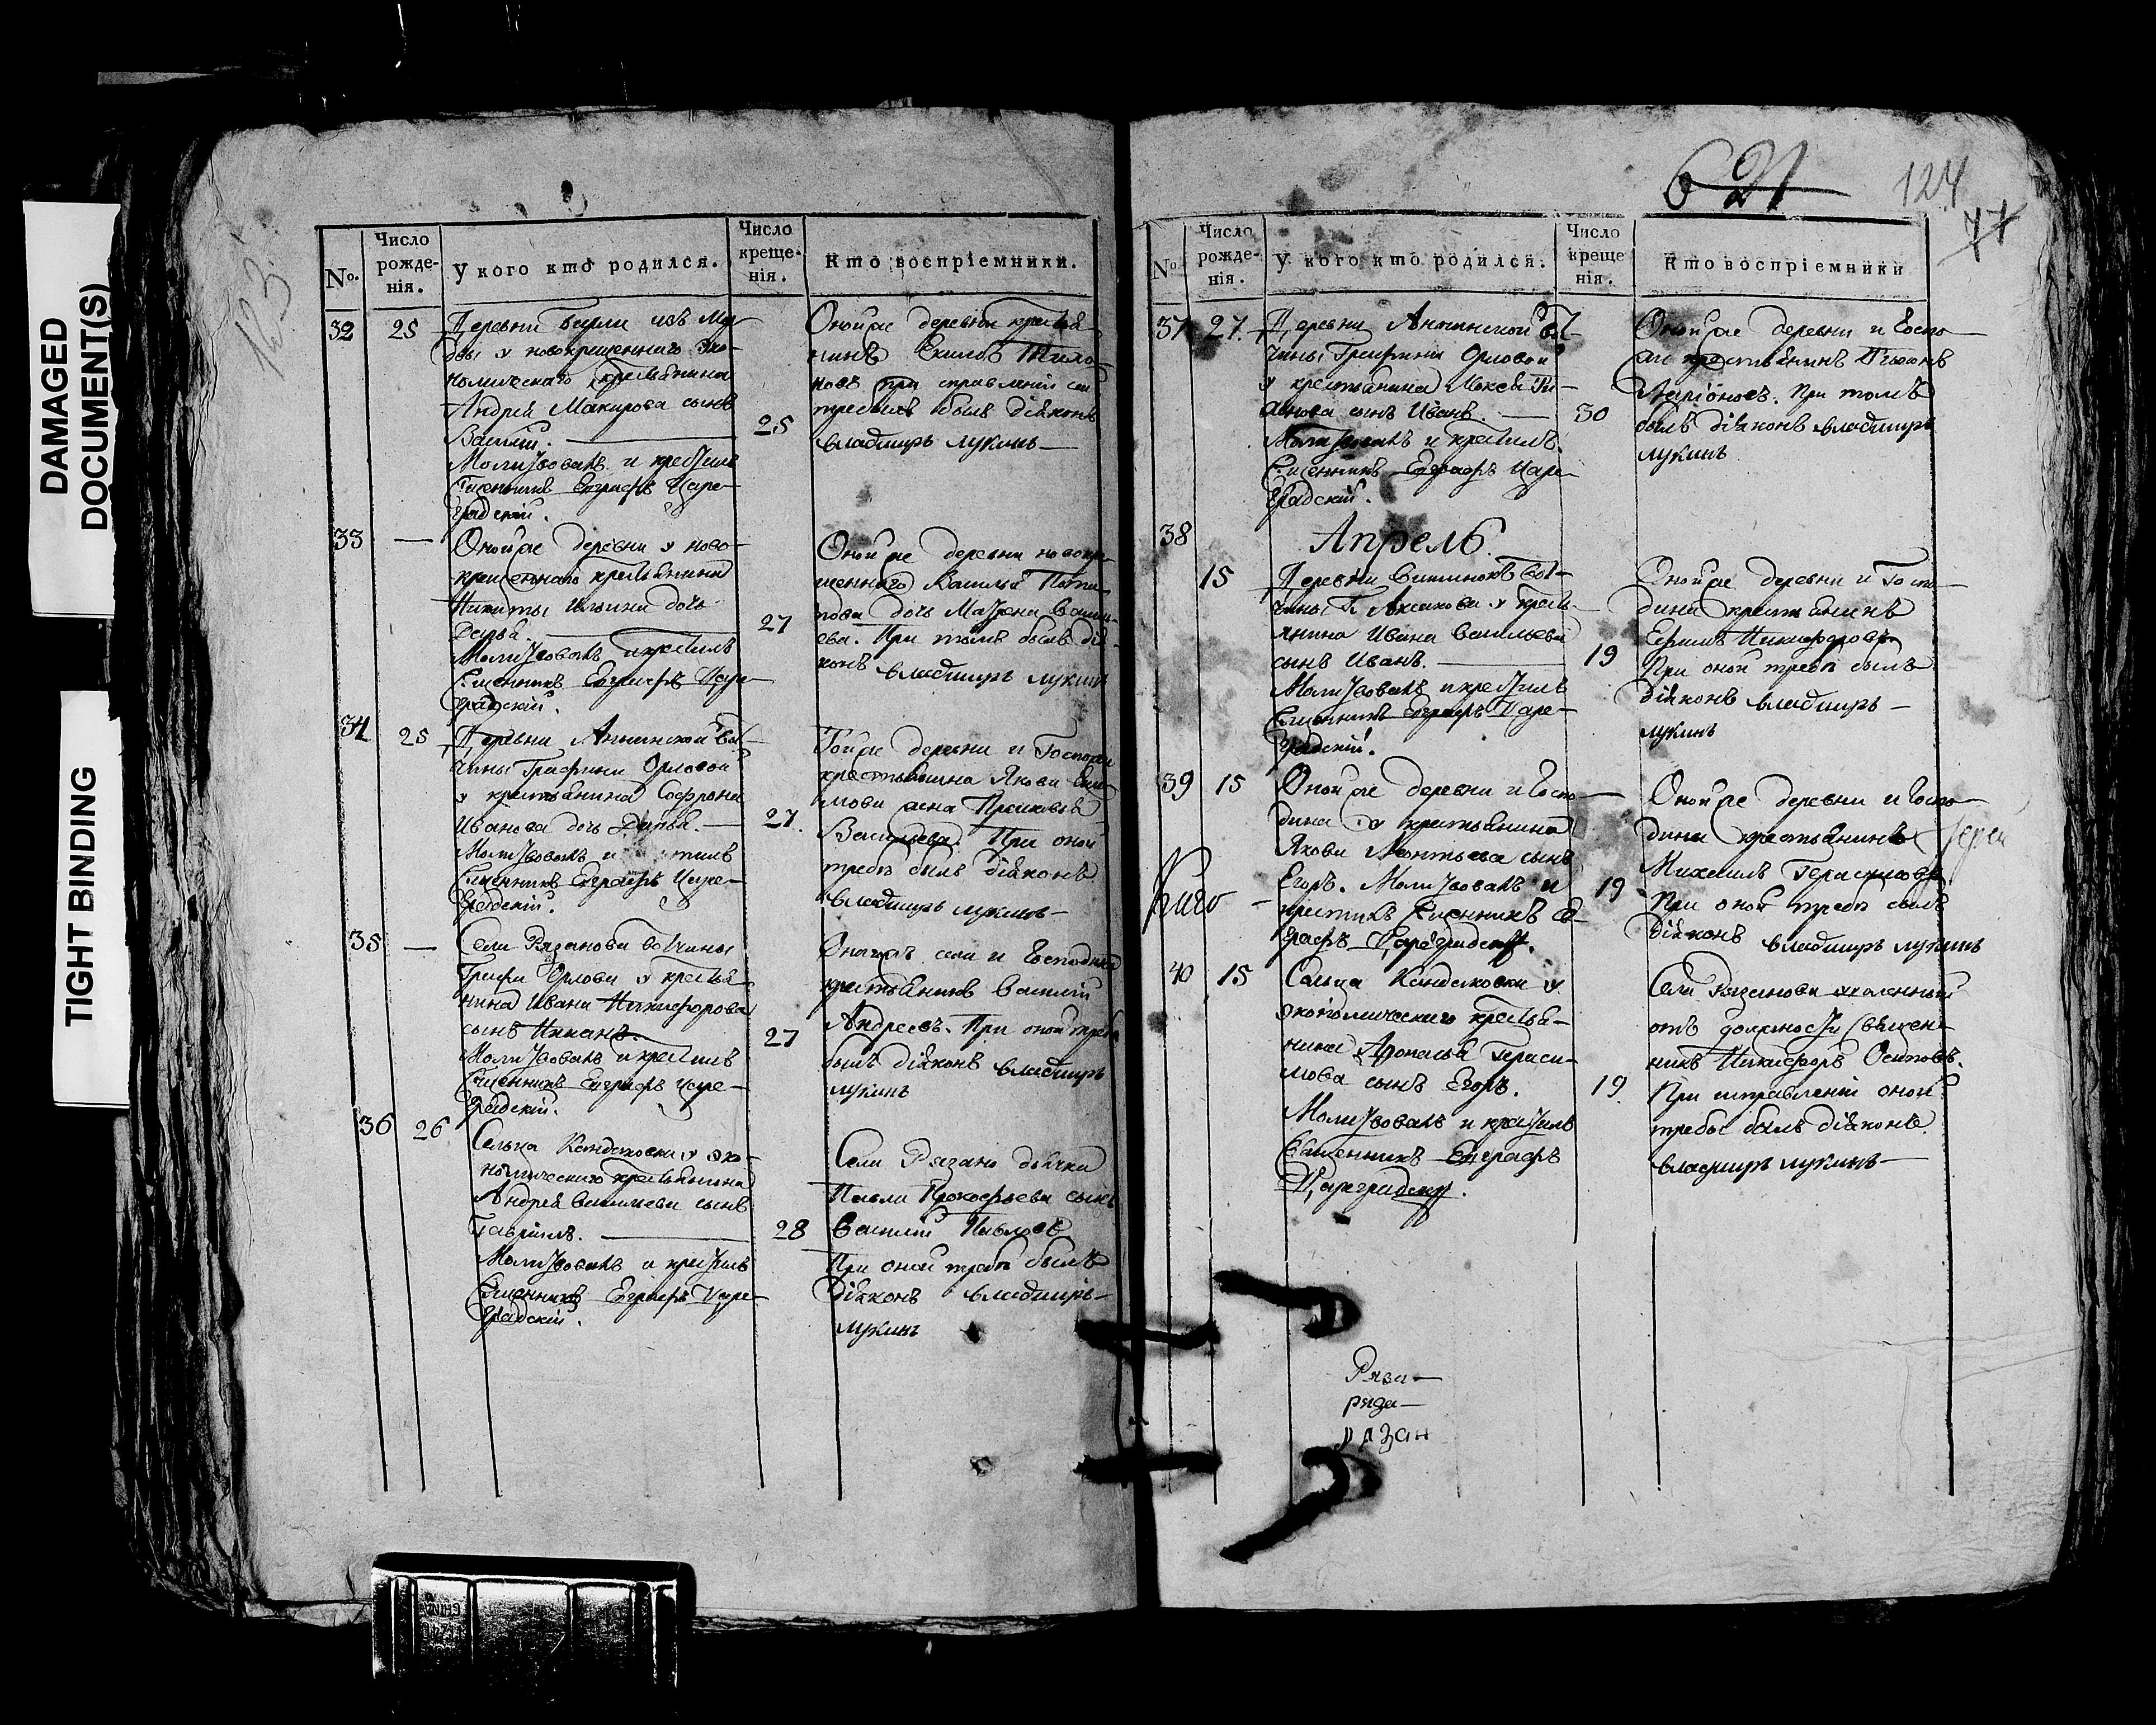 DAMAGED
DOCUMENT(S)
TIGHT BINDING
123.
№.
Число рожде-нія.
У кого кто родился.
Число креще-нія.
Кто воспріемники.
32 25 Деревни Бирли изъ
у новокрещеннаго эко-
номическаго крестьянина
Андрея Макирова сынъ
Василій.
25
Молитвовалъ и крестилъ
Священникъ Евграфъ Царе-
градскій.
Оной же деревни крестья-
нинъ Тихо-
новъ при справленіи сей
былъ діяконъ
владимиръ лукинъ
33 — Оной же деревни у ново-
крещеннаго крестьянина
Никиты Ильина дочь
Дарья.
27
Молитвовалъ и крестилъ
Священникъ Евграфъ Царе-
градскій.
Оной же деревни новокре-
щеннаго Василья
дочь Матрена Василь-
ева. При томъ былъ дія-
конъ владимиръ лукинъ
34 25 Деревни Аннинской вот-
чины Графини Орловой
у крестьянина Софрона
Иванова дочь Дарья.
27.
Молитвовалъ и
Священникъ Евграфъ Царе-
градскій.
Той же деревни и Госпожи
крестьянина Якова
жена Прасковья
Васильева. При оной
требѣ былъ діяконъ
владимиръ лукинъ
35 — Села Рязанова вотчины
Графа Орлова у крестья-
нина Ивана Никифорова
сынъ
27
Молитвовалъ и крестилъ
Священникъ Евграфъ Царе-
градскій.
села и Господина
крестьянинъ Василій
Андреевъ. При оной требѣ
былъ діяконъ владимиръ
лукинъ
36 26 Сельца Кандаковки у эко-
номическаго крестьянина
Андрея Васильева сынъ
Гавріилъ.
28
Молитвовалъ и крестилъ
Священникъ Евграфъ Царе-
градскій.
Села Рязано дьячка
Павла Прокофьева сынъ
Василій Павловъ
При оной требѣ былъ
діяконъ владимиръ
лукинъ
621
124
77
№.
Число рожде-нія.
У кого кто родился.
Число креще-нія.
Кто воспріемники
37 27. Деревни Аннинской вот-
чины Графини Орловой
у крестьянина
сынъ Иванъ.
30
Молитвовалъ и крестилъ
Священникъ Евграфъ Царе-
градскій.
Оной же деревни и Госпо-
жи крестьянинъ
Ларіоновъ. При томъ
былъ діяконъ владимиръ
лукинъ
38 Апрель.
15 Деревни вот-
чины Г. Аксакова у кресть-
янина Ивана Васильева
сынъ Иванъ.
19
Молитвовалъ и крестилъ
Священникъ Евграфъ Царе-
градскій.
Оной же деревни и Госпо-
дина крестьянинъ
Ефимъ Никифоровъ
При оной требѣ былъ
діяконъ владимиръ
лукинъ
39 15 Оной же деревни и Госпо-
дина у крестьянина
Якова Леонтьева сынъ
Егоръ. Молитвовалъ и
19
крестилъ Священникъ Ев-
графъ Цареградскій.
Оной же деревни и Госпо-
дина крестьянинъ
Михаилъ Герасимовъ
При оной требѣ былъ
діяконъ владимиръ лукинъ
40 15 Сельца Кандаковки у
экономическаго крестья-
нина Афонасья Гераси-
мова сынъ Егоръ.
19.
Молитвовалъ и крестилъ
Священникъ Евграфъ
Цареградскій.
Села Рязанова
отъ должности священ-
никъ Никифоръ Осиповъ.
При исправленіи оной
требы былъ діяконъ
владимиръ лукинъ
Ряза